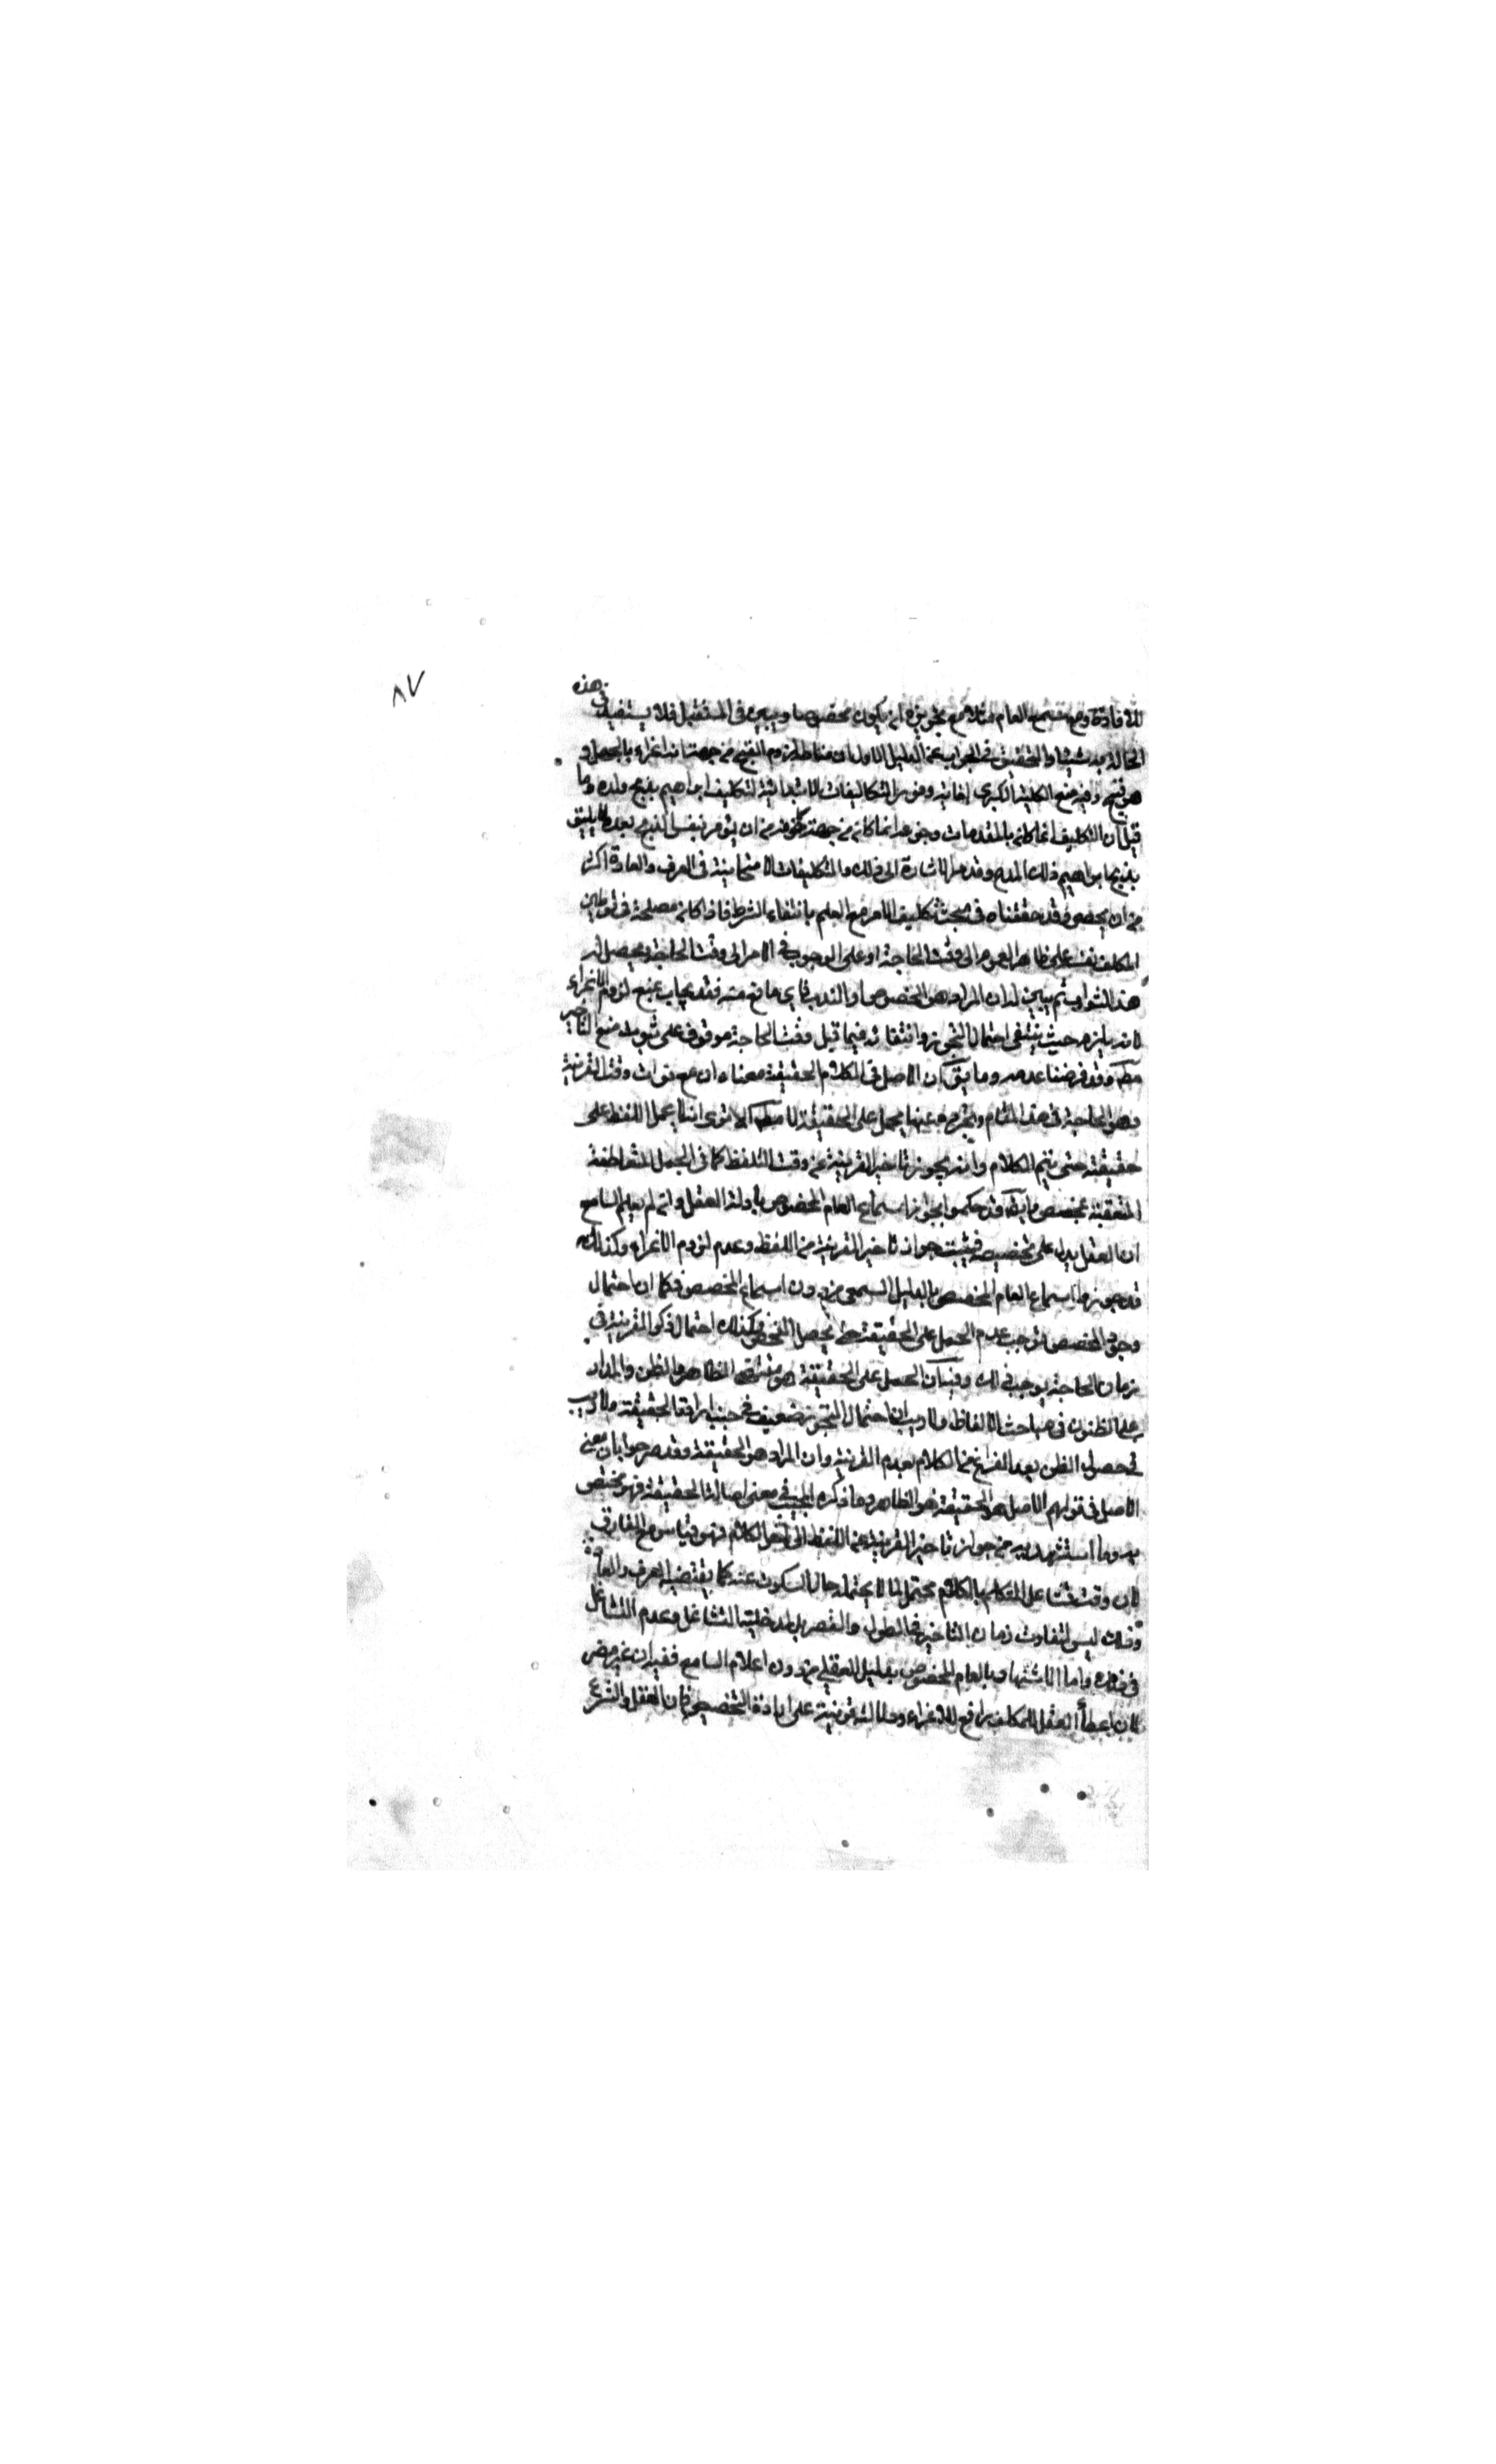 ٨٧
للافادة ومع سمع العام مثلا مع تجويزه ان يكون مخصوصا ويبين فى المستقبل فلا يستفيد فى هذه
الحالة به شيئا والتحقيق فى الجواب عن الدليل الاول ان مناط لزوم القبح من جهة انه اغراء بالجهل و
هو قبيح وفيه منع الكلية الكبرى اذ غايته وفور التكاليف الابتلائية لتكليف ابراهيم بذبح ولده وما
قيل ان التكليف انما كان بالمقدمات وجزعه انما كان من جهة خوفه من ان يؤمر بنفس الذبح بعده لا يليق
بذبح ابراهيم ذلك المدح وقد مر الاشارة الى ذلك والتكليفات الامتحانية فى العرف والعادة اكثر
من ان يحصى وقد حققناه فى مبحث تكليف الامر مع العلم بانتفاء الشرط فاذا كان مصلحة فى توطين
المكلف نفسه على ظاهر العموم الى وقت الحاجة او على الوجوب فى الامر الى وقت الحاجة ويحصل له
هذا الثواب ثم يبين له ان المراد هو الخصوص او الندب فاى مانع منه فقد يجاب بمنع لزوم الاغراء
لانه يلزم حيث ينتفى احتمال التجوز وانتفائه فيما قبل وقت الحاجة موقوف على ثبوت منع التاخير
مط وقد فرضنا عدمه وما يقال ان الاصل فى الكلام الحقيقة معناه ان مع فوات وقت القرينة
وهو الحاجة فى هذا المقام وتجرده عنها يحمل على الحقيقة لا مط الا ترى انه لا يحمل اللفظ على
حقيقته حتى يتم الكلام وانه يجوز تاخير القرينة عن وقت التلفظ كما فى الجمل المتعاطفة
المتعقبة بمخصص وايضا قد حكموا بجواز اسماع العام المخصوص بادلة العقل وان لم يعلم السامع
ان العقل يدل على تخصيصه فيثبت جواز تاخير القرينة من اللفظ وعدم لزوم الاغراء وكذلك
قد جوزوا اسماع العام المخصص بالدليل السمعى من دون اسماع المخصص فكما ان احتمال
وجود المخصص يوجب عدم الحمل على الحقيقة حتى يحصل التفحص فكذلك احتمال ذكر القرينة فى
زمان الحاجة يوجب ذلك وفيه ان الحمل على الحقيقة هو مقتضى الظاهر والظن والمدار
على الظنون فى مباحث الالفاظ ولا ريب ان احتمال التجوز ضعيف فى جنب ارادة الحقيقة ولا ريب
فى حصول الظن بعد الفراغ من الكلام بعدم القرينة وان المراد هو الحقيقة وقد مر جوابا بان معنى
الاصل فى قولهم الاصل هو الحقيقة هو الظاهر وما ذكره المجيب فى معنى اصالة الحقيقة فهو مختص
به وما استشهد به من جواز تاخير القرينة عن اللفظ الى آخر الكلام فهو قياس مع الفارق
لان وقت تشاغل المتكلم بالكلام محتمل لما لا يحتمله حال السكوت عنه كما يقتضيه العرف والعادة
وذلك ليس لتفاوت زمان التاخير فى الطول والقصر بل لمدخلية التشاغل وعدم التشاغل
فى ذلك واما الاستشهاد بالعام المخصوص بدليل العقل من دون اعلام السامع ففيه انه غير مضر
لان اعطاء العقل للمكلف رافع للاغراء ودلالته قرينة على ارادة التخصيص فان العقل والشرع